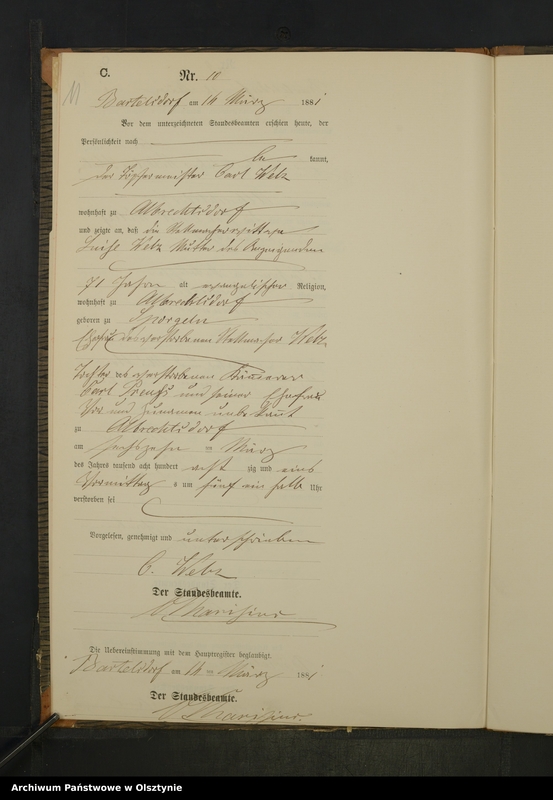 C.
Nr. 10
11
Bartelsdorf am 16 März 1881
Vor dem unterzeichneten Standesbeamten erschien heute, der
Persönlichkeit nach
be kannt,
der Töpfermeister Carl Welz
wohnhaft zu Albrechtsdorf
und zeigte an, daß die Stellmacherwittwe
Luise Welz Mutter des Anzeigenden
71 Jahre alt evangelischer Religion,
wohnhaft zu Albrechtsdorf
geboren zu Spörgeln
Ehefrau des verstorbenen Stellmacher Welz
Tochter des verstorbenen
Carl Preuß und seiner Ehefrau
Vor und Zunamen unbekannt
zu Albrechtsdorf
am sechszehn März
des Jahres tausend acht hundert acht zig und eins
Vormittag s um fünf ein halb Uhr
verstorben sei
Vorgelesen, genehmigt und unterschrieben
C. Welz
Der Standesbeamte.
Die Uebereinstimmung mit dem Hauptregister beglaubigt.
Bartelsdorf am 16 ten März 1881
Der Standesbeamte.
Archiwum Państwowe w Olsztynie